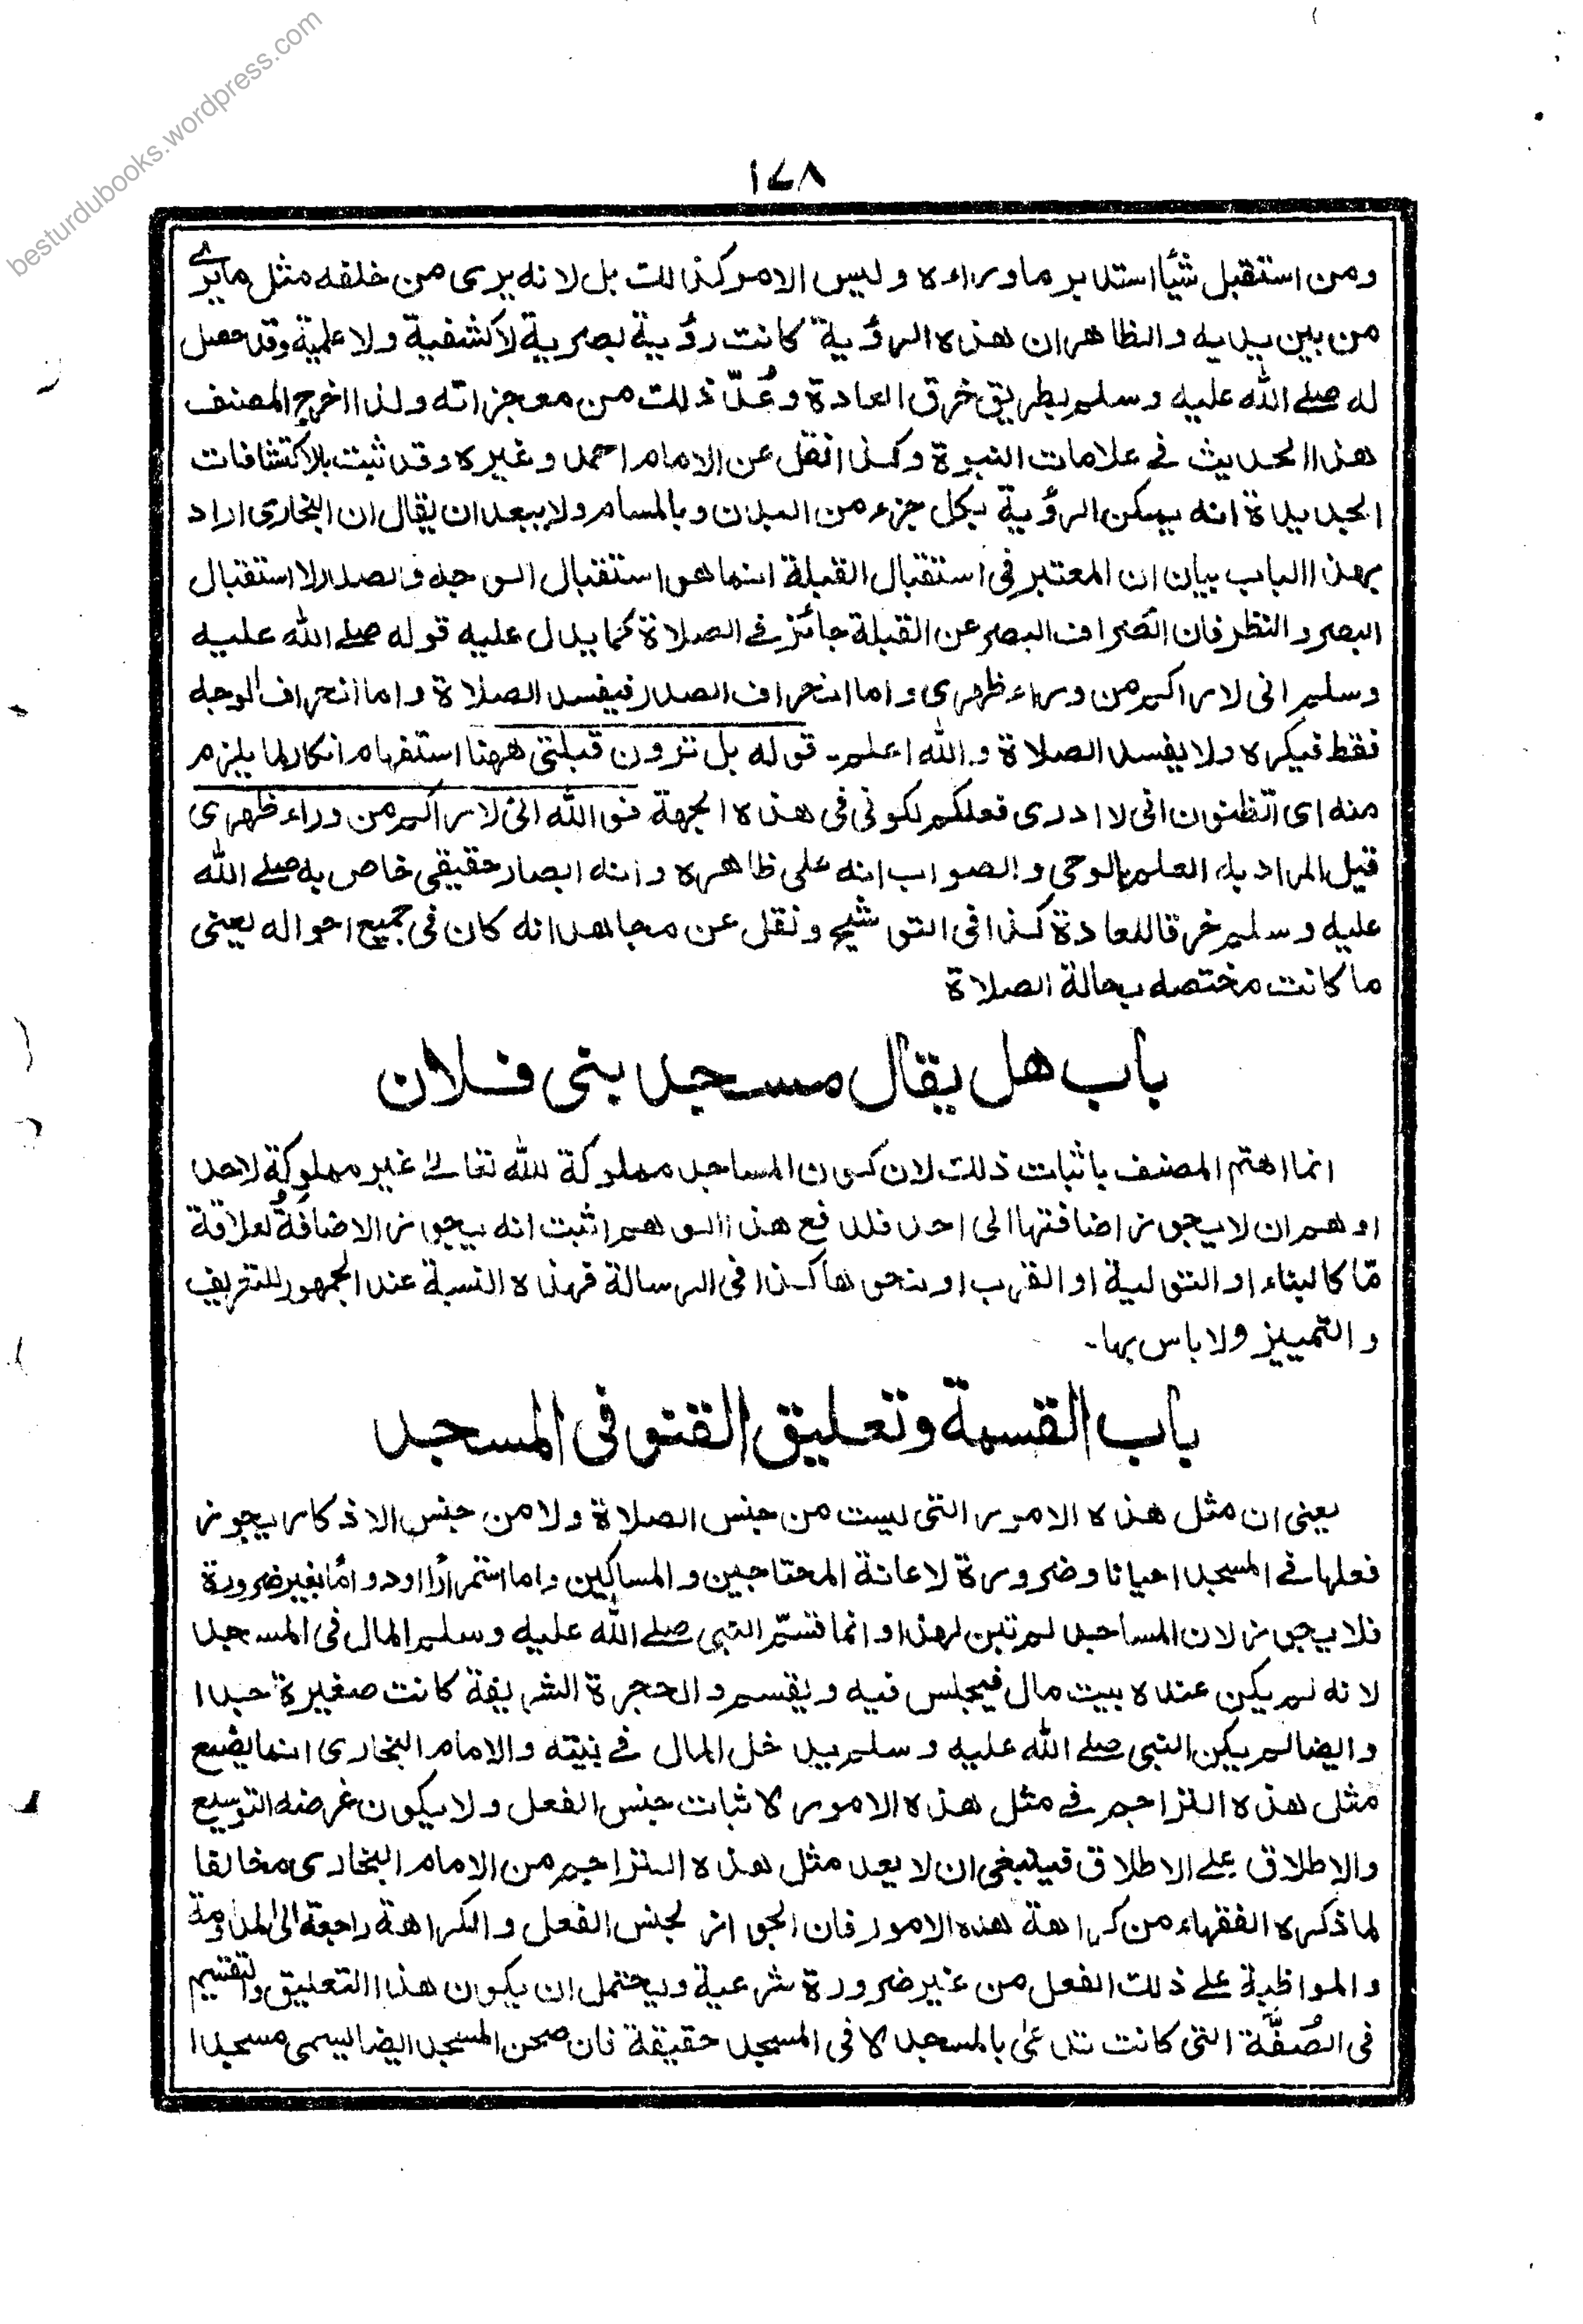 besturdubooks.wordpress.com
١٧٨
ومن استقبل شيئا استدبر ما وراءه وليس الامر كذالك بل لانه يرى من خلفه مثل مايرى
من بين يديه والظاهران هذه الرؤية كانت رؤية بصرية لاكشفية ولا علمية وقد حصل
له صلے الله عليه وسلم بطريق خرق العادة وعُدّ ذلك من معجزاته ولذا اخرج المصنف
هذا الحديث فى علامات النبوة وكذا نقل عن الامام احمد وغيره وقد ثبت بالاكتشافات
الجديدة انه يمكن الرؤية بكل جزء من البدن وبالمسام ولا يبعد ان يقال ان البخارى اراد
بهذا الباب بيان ان المعتبر فى استقبال القبلة انما هو استقبال الوجه والصدر لا استقبال
البصر والنظر فان انصراف البصر عن القبلة جائز فى الصلاة كما يدل عليه قوله صلے الله عليه
وسلم انى لاراكم من وراء ظهرى واما انحراف الصدر فيفسد الصلاة واما انحراف الوجه
فقط فيكره ولا يفسد الصلاة والله اعلم۔ قوله بل ترون قبلتى ههنا استفهام انكار لما يلزم
منه اى اتظنون انى لا ادرى فعلكم لكونى فى هذه الجهة فو الله انى لاراكم من وراء ظهرى
قيل المراد به العلم بالوحى والصواب انه على ظاهره وانه ابصار حقيقى خاص به صلے الله
عليه وسلم خرقا للعادة كذا فى التوشيح ونقل عن مجاهد انه كان فى جميع احواله يعنى
ما كانت مختصه بحالة الصلاة
باب هل يقال مسجد بنى فلان
انما اهتم المصنف باثبات ذلك لان كون المساجد مملوكة لله تعالے غير مملوكة لاحد
اوهم ان لا يجوز اضافتها الى احد فلدفع هذا الوهم اثبت انه يجوز الاضافةُ لعلاقة
مّا كالبناء او التولية او القرب او نحوها كذا فى الرسالة فهذه النسبة عند الجمهور للتعريف
والتمييز ولا باس بها۔
باب القسمة وتعليق القنو فى المسجد
يعنى ان مثل هذه الامور التى ليست من جنس الصلاة ولا من جنس الاذكار يجوز
فعلها فى المسجد احيانا وضرورة لاعانة المحتاجين والمساكين واما استمرارًا او دوامًا بغير ضرورة
فلا يجوز لان المساجد لم تبن لهذا وانما قسّم النبى صلے الله عليه وسلم المال فى المسجد
لانه لم يكن عنده بيت مال فيجلس فيه ويقسم والحجرة الشريفة كانت صغيرة جدا
وايضا لم يكن النبى صلے الله عليه وسلم يدخل المال فى بيته والامام البخارى انما يضع
مثل هذه التراجم فى مثل هذه الامور لاثبات جنس الفعل ولا يكون غرضه التوسيع
والاطلاق علے الاطلاق فينبغى ان لا يعد مثل هذه التراجم من الامام البخارى مخالفا
لما ذكره الفقهاء من كراهة هذه الامور فان الجواز لجنس الفعل والكراهة راجعة الى المداومة
والمواظبة علے ذلك الفعل من غير ضرورة شرعية ويحتمل ان يكون هذا التعليق والتقسيم
فى الصُفَّة التى كانت تدعىٰ بالمسجد لا فى المسجد حقيقة فان صحن المسجد ايضا ليسمى مسجدا